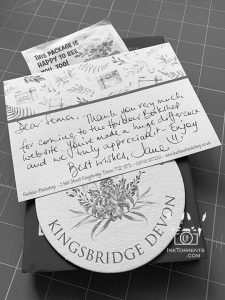 THIS PACKAGE IS
HAPPY TO SEE
YOU, TOO!
Dear Sonia, Thank you very much
for coming to the Harbour Bookshop
website you've made a huge difference
and we truly appreciate it. Enjoy
Best wishes, Jane
Harbour Bookshop - 2 Mill Street Kingsbridge Devon TQ7
KINGSBRIDGE DEVON
INKTORRENTS.COM